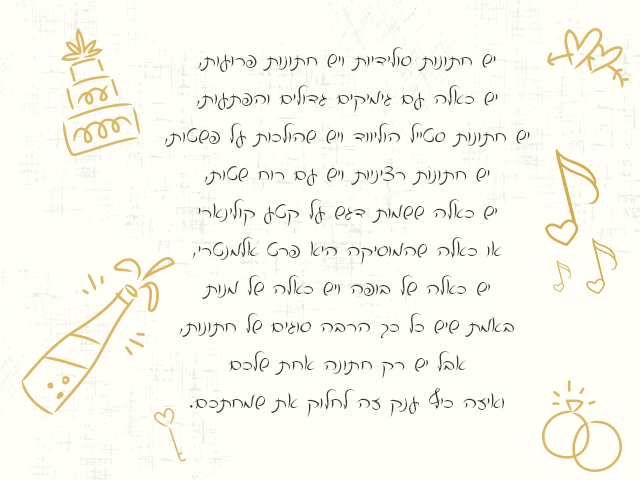 יש חתונות סולידיות ויש חתונות פרועות,
יש כאלה עם גימיקים גדולים והפתעות,
יש חתונות סטייל הוליווד ויש שהולכות על פשטות,
יש חתונות רציניות ויש עם רוח שטות,
יש כאלה ששמות דגש על קטע קולינארי
או כאלה שהמוסיקה היא פרט אלמנטרי,
יש כאלה של בופה ויש כאלה של מנות
באמת שיש כל כך הרבה סוגים של חתונות,
אבל יש רק חתונה אחת שלכם
ואיזה כיף ענק עה לחלוק את שמחתכם.